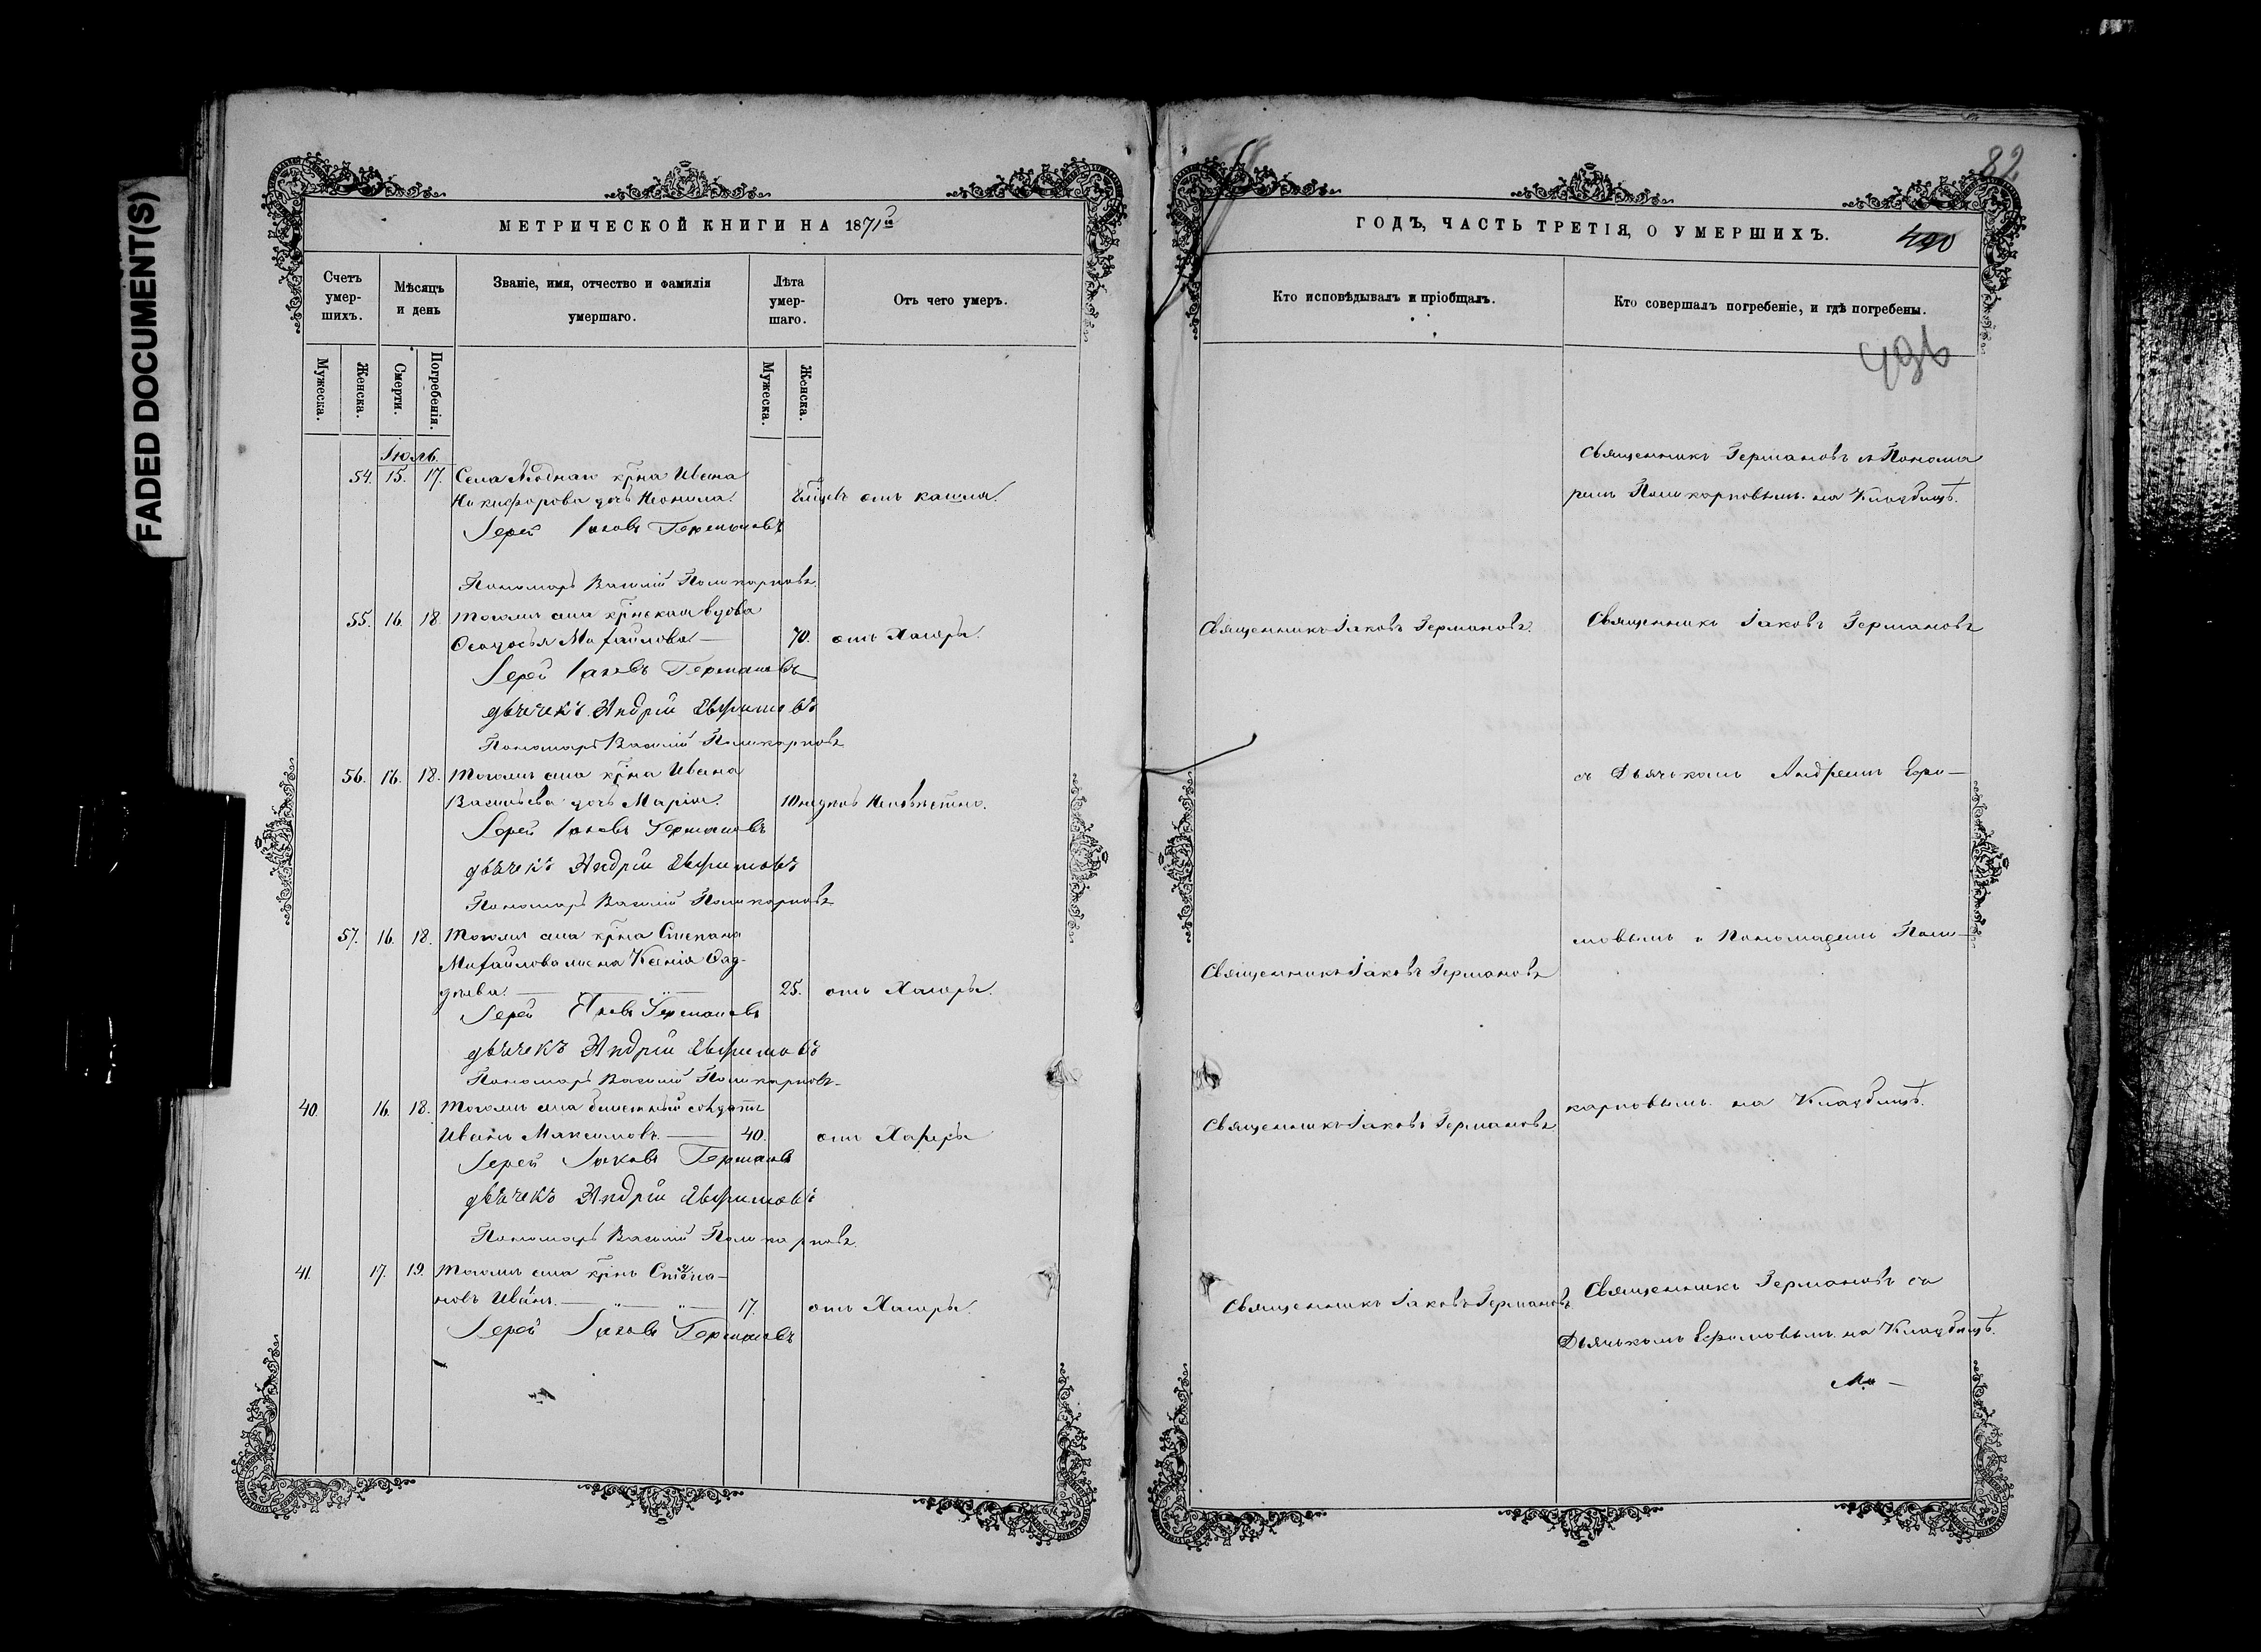 FADED DOCUMENT(S)
МЕТРИЧЕСКОЙ КНИГИ НА 1871й
Счетъ умер-шихъ.
Мѣсяцъ и день
Званіе, имя, отчество и фамилія умершаго.
Лѣта умер-шаго.
Отъ чего умеръ.
Мужеска.
Женска.
Смерти.
Погребенія.
Мужеска.
Женска.
Іюль.
54. 15. 17. Села крна Ивана
Никифорова дочь Неонила. отъ кашля.
Іерей Іаковъ Германовъ
Пономарь Василій Поликарповъ
55. 16. 18. Тогожъ села крнская вдова
Ѳеодосья Михайлова — 70. отъ Холеры.
Іерей Іаковъ Германовъ
дьячекъ Андрій Евфимовъ
Пономарь Василій Поликарповъ
56. 16. 18. Тогожъ села крна Ивана
Васильева дочь Марія. 10 недѣль Неизвѣстно.
Іерей Іаковъ Германовъ
дьячекъ Андрій Евфимовъ
Пономарь Василій Поликарповъ
57. 16. 18. Тогожъ села крна Степана
Михайлова жена Ксенія Фад-
дѣева. — 25. отъ Холеры.
Іерей Яковъ Германовъ
дьячекъ Андрій Евфимовъ
Пономарь Василій Поликарповъ
40. 16. 18. Тогожъ села билетный солдатъ
Иванъ Максимовъ. — 40. отъ Холеры
Іерей Іаковъ Германовъ
дьячекъ Андрій Евфимовъ
Пономарь Василій Поликарповъ
41. 17. 19. Тогожъ села крнъ Степа-
новъ Иванъ. — 17. отъ Холеры.
Іерей Іаковъ Германовъ
82
ГОДЪ, ЧАСТЬ ТРЕТІЯ, О УМЕРШИХЪ.
490
Кто исповѣдывалъ и пріобщалъ.
Кто совершалъ погребеніе, и гдѣ погребены.
Священникъ Германовъ съ Понома
ремъ Поликарповымъ на Кладбищѣ.
Священникъ Іаковъ Германовъ.
Священникъ Іаковъ Германовъ
съ Дьячкомъ Андреемъ Ефи—
мовымъ и Пономаремъ Поли—
Священникъ Іаковъ Германовъ
карповымъ на Кладбищѣ.
Священникъ Іаковъ Германовъ
Священникъ Іаковъ Германовъ
Священникъ Германовъ съ
Дьячкомъ Ефимовымъ на Кладбищѣ.